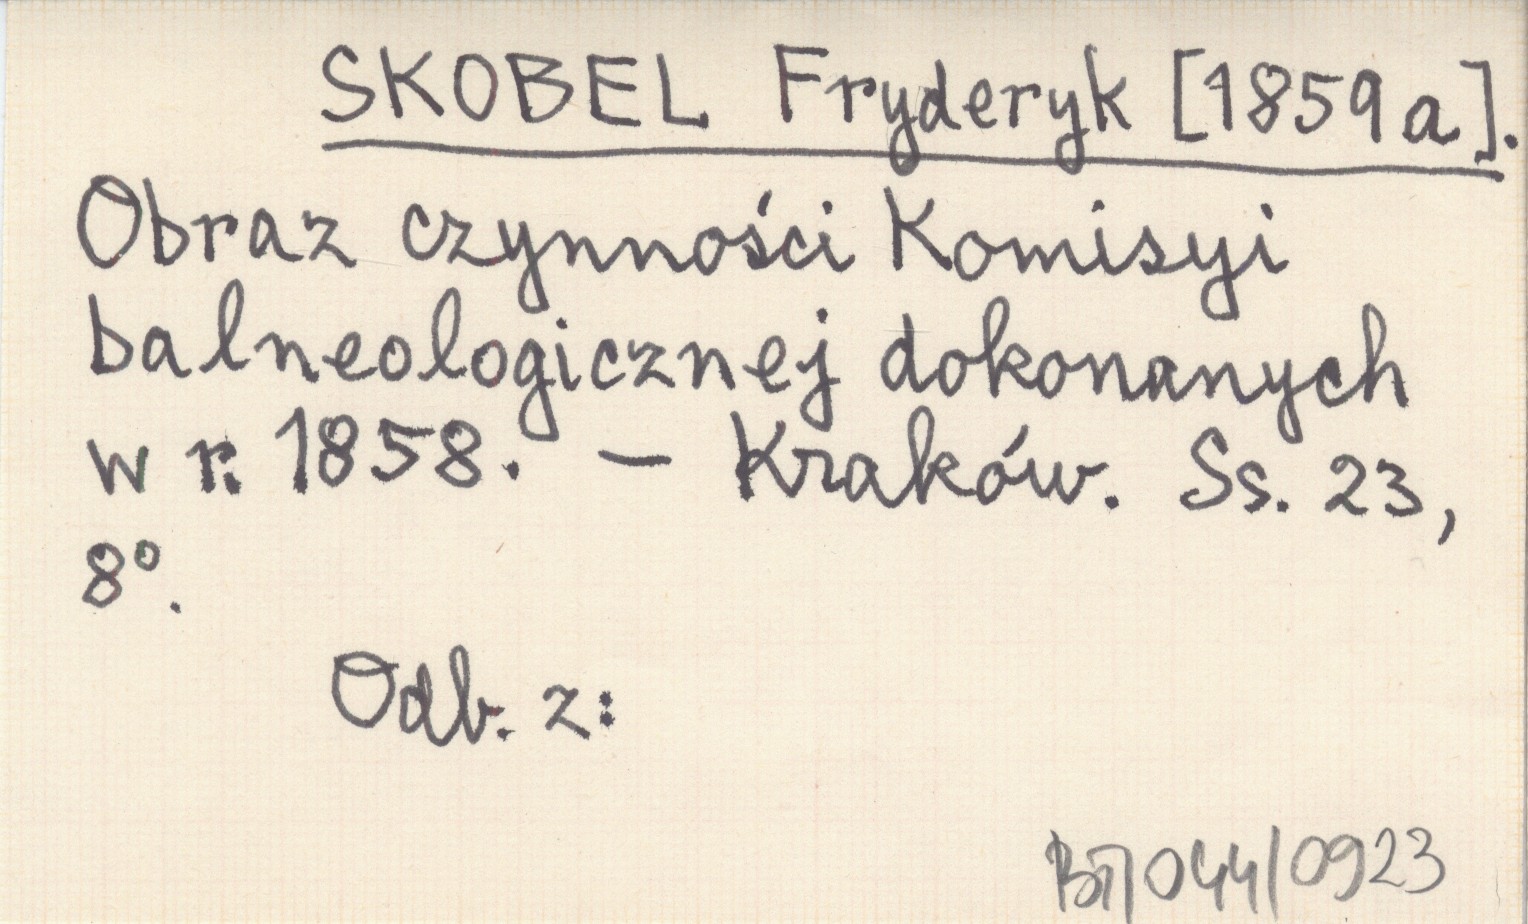 SKOBEL Fryderyk [1859a].
Obraz czynności Komisyi
balneologicznej dokonanych
w r. 1858. – Kraków. Ss. 23,
8º.
Odb. z:
044/0923